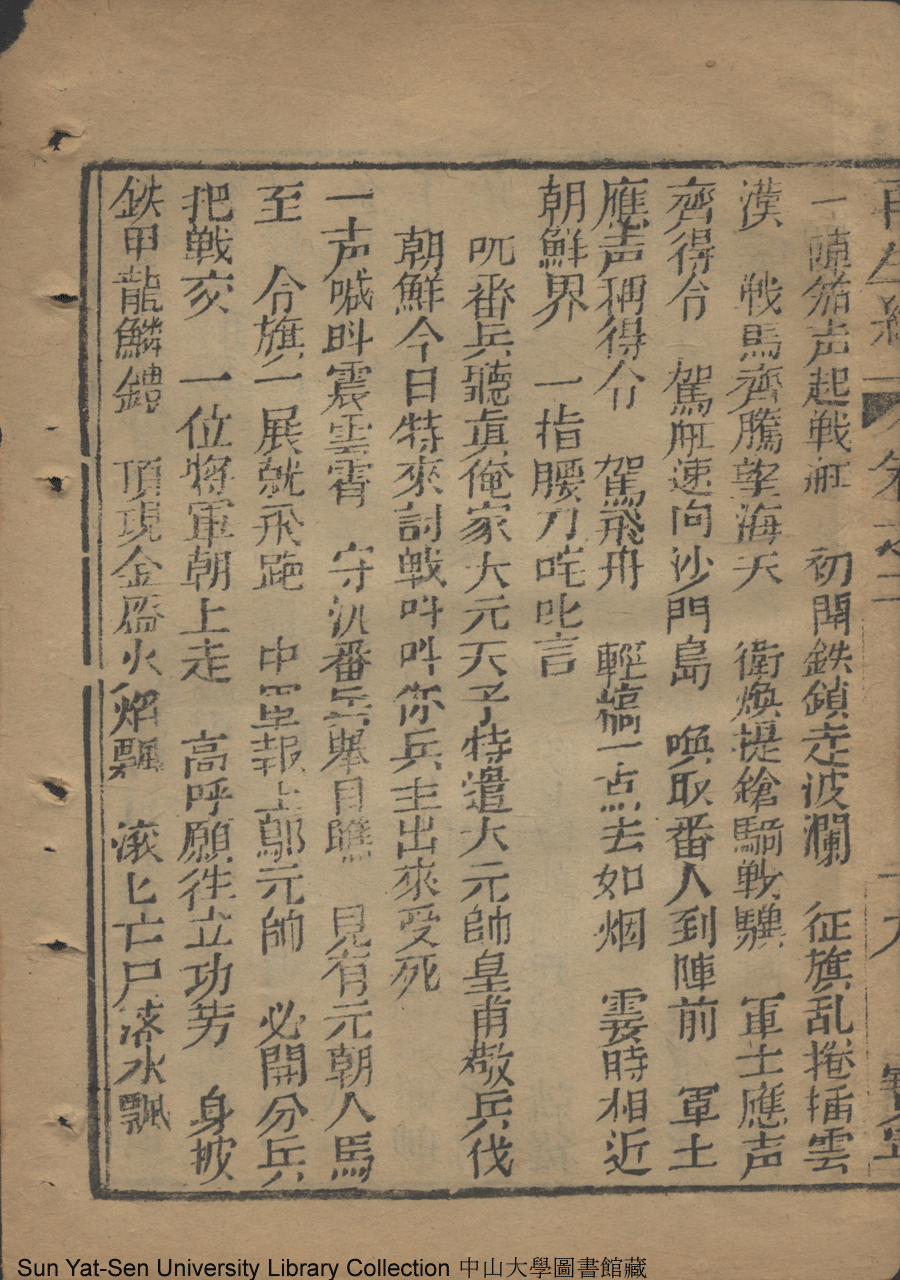 再生緣 卷之二 十九
一陣笳声起戦舡 初聞鉄鎖走波瀾 征旗乱捲揷雲
漢 戦馬齊騰望海天 衛煥提鎗騎戦驥 軍士應声
齊得令 駕舡速向沙門島 喚取番人到陣前 軍士
應声稱得令 駕飛舟 輕槁一点去如烟 霎時相近
朝鮮界 一指腰刀咤叱言
呒番兵聽真俺家大元天子特遣大元帥皇甫敬兵伐
朝鮮今日特來討戦呌呌你兵主出來受死
一声喊呌震雲霄 守汛番兵舉目瞧 見有元朝人馬
至 令旗一展就飛跑 中軍報上鄔元帥 必開分兵
把戦交 一位將軍朝上走 高呼願徃立功劳 身披
鉄甲龍鱗鎧 頂現金盔火焰飄 滚匕亡尸落水飄
Sun Yat-Sen University Library Collection 中山大學圖書館藏